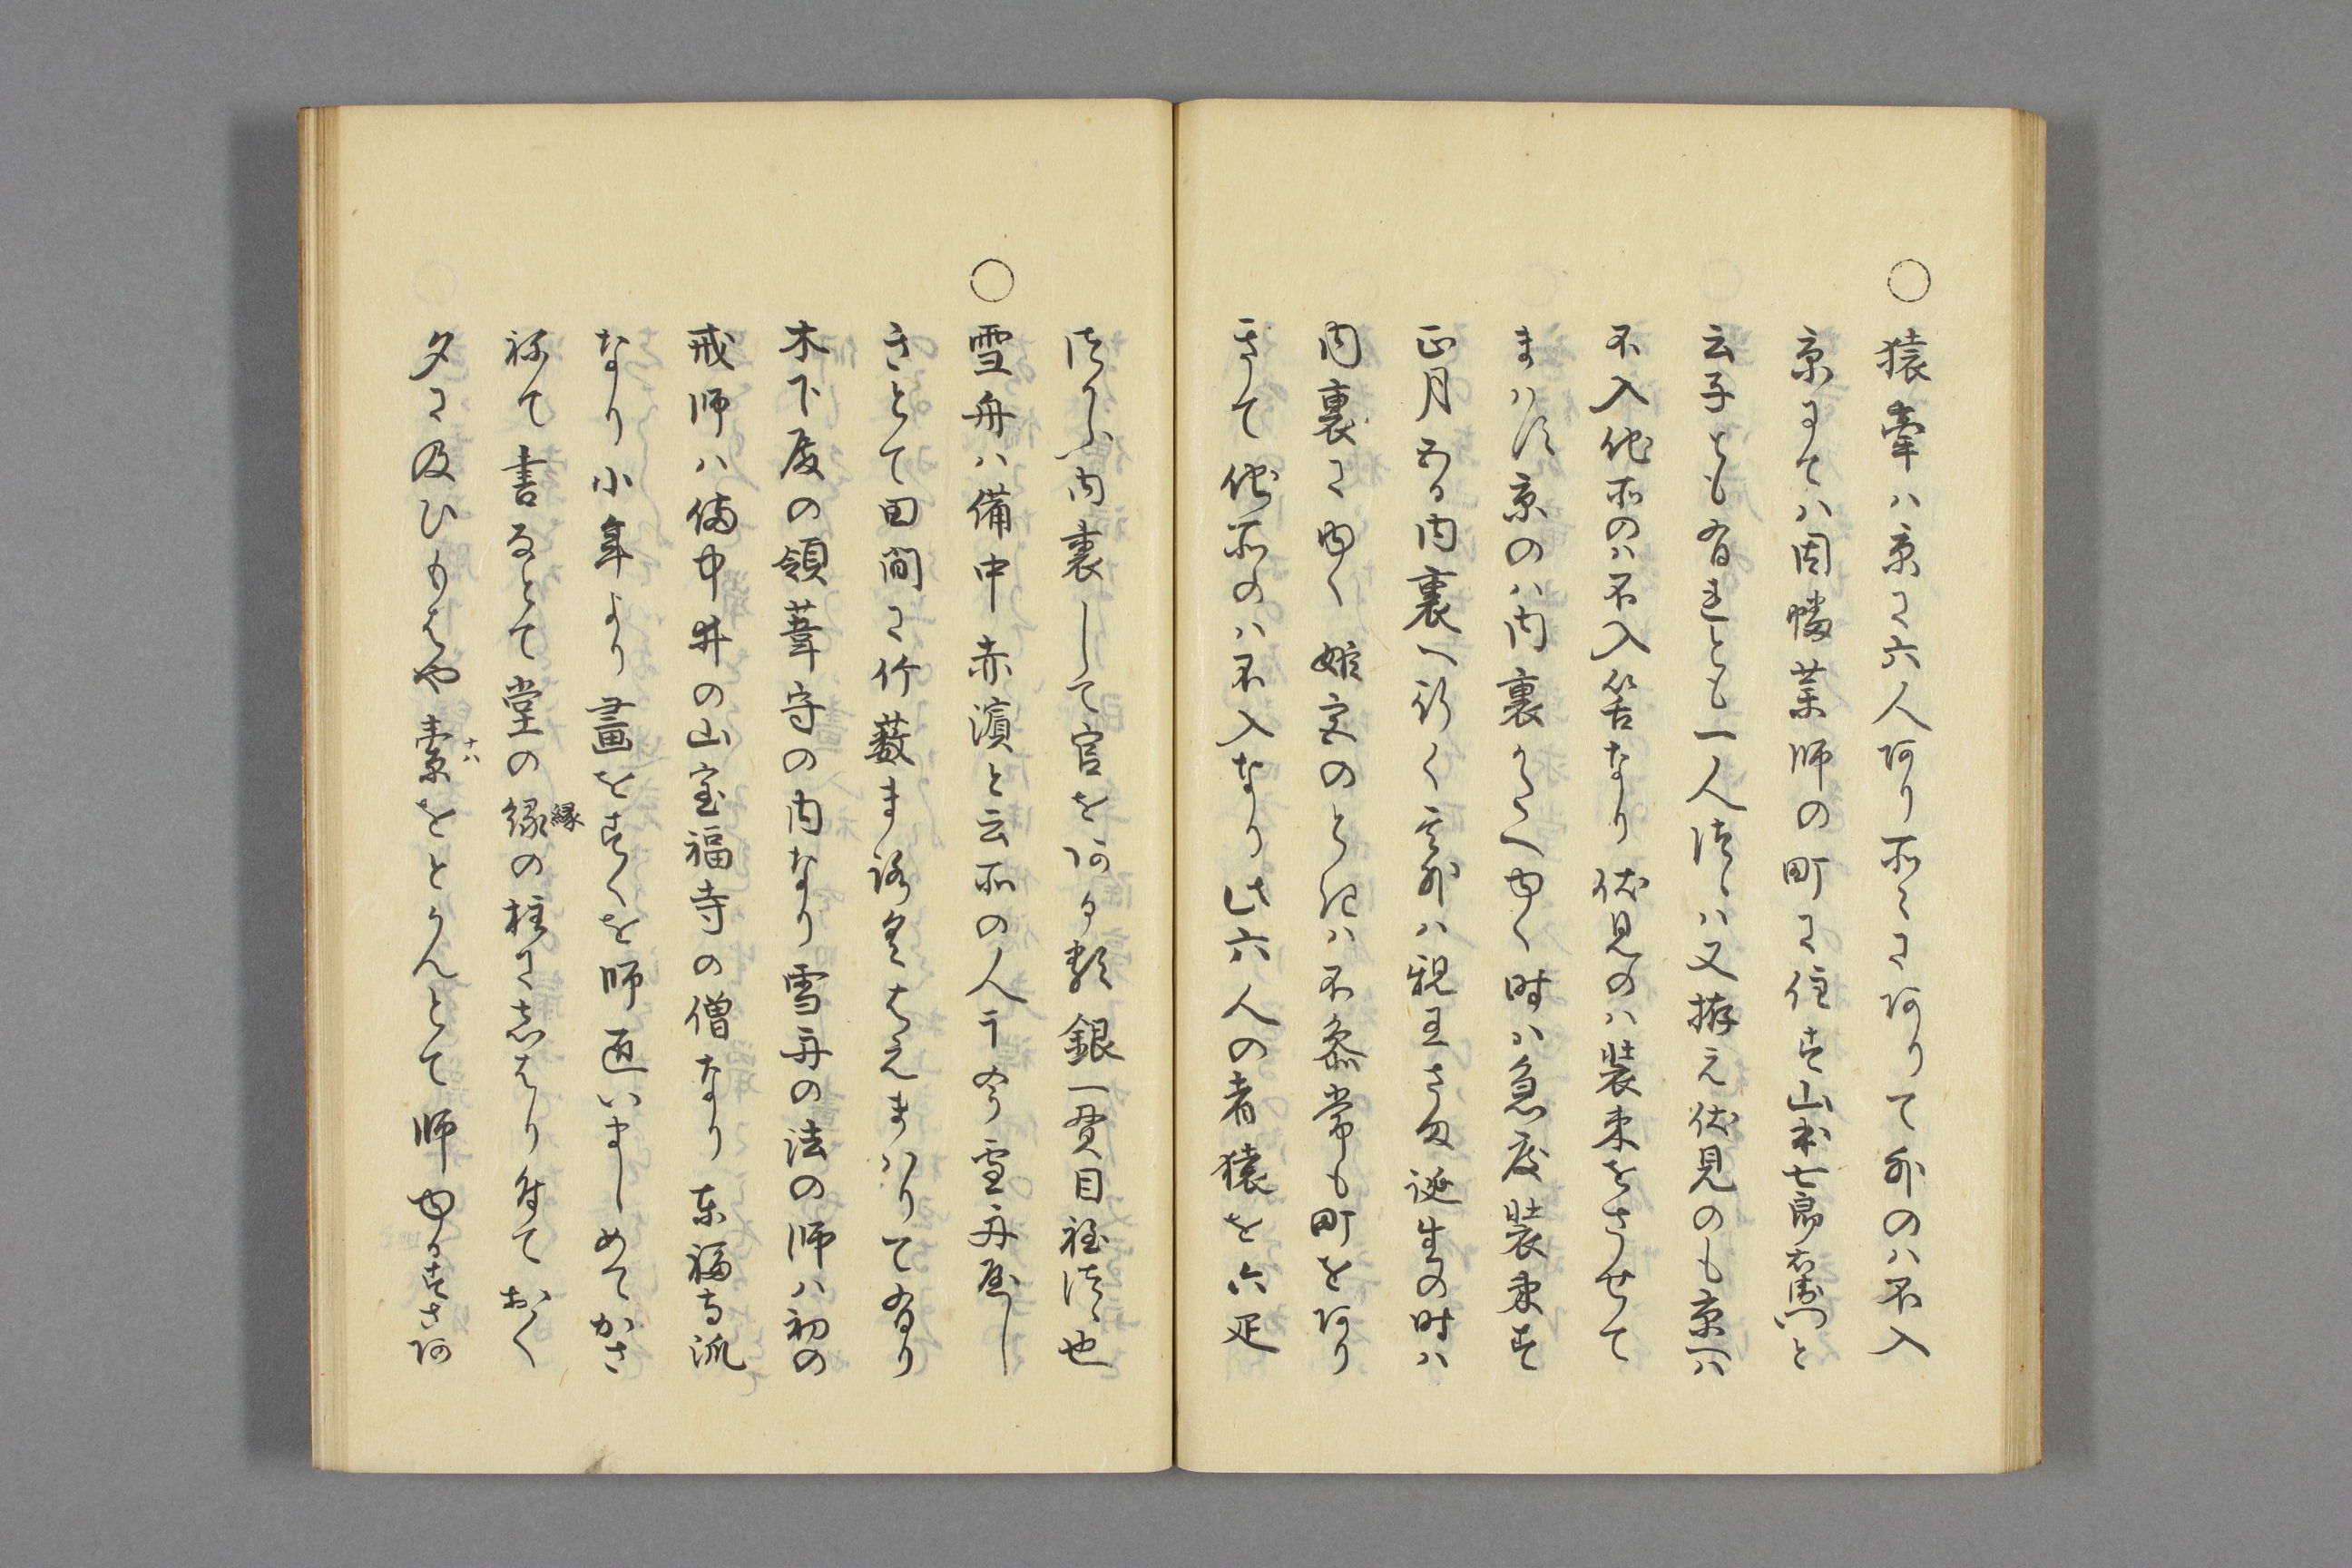 ○猿牽ハ京に六人阿り所々に阿りて外のハ不入
京にてハ因幡薬師の町に住す山本七郎右衛門と
云子とも有れとも一人つゝハ又拵え伏見のも京ハ
不入他所のハ不入筈なり伏見のハ装束をさせて
まハす京のハ内裏かたへゆく時ハ急度装束す
正月五日内裏へ行く其外ハ親王さま誕生の時ハ
内裏にゆく姫宮のときハ不参常も町を阿り
きて他所のハ不入なり此六人の者猿を六疋
つかふ内裏して官を阿り銀一貫目程つゝ也
○雪舟ハ備中赤濱と云所の人ニテ今雪舟屋し
きとて田間に竹薮ま
木下殿の領葦守の内なり雪舟の法の師ハ初の
戒師ハ備中井の山宝福寺の僧なり東福寺派
なり小年より畫をすくを師匠いましめてかさ
ねて書なとて堂の縁の柱にしはり付ておく
縁
夕に及ひ
とかんとて師ゆかすさ阿